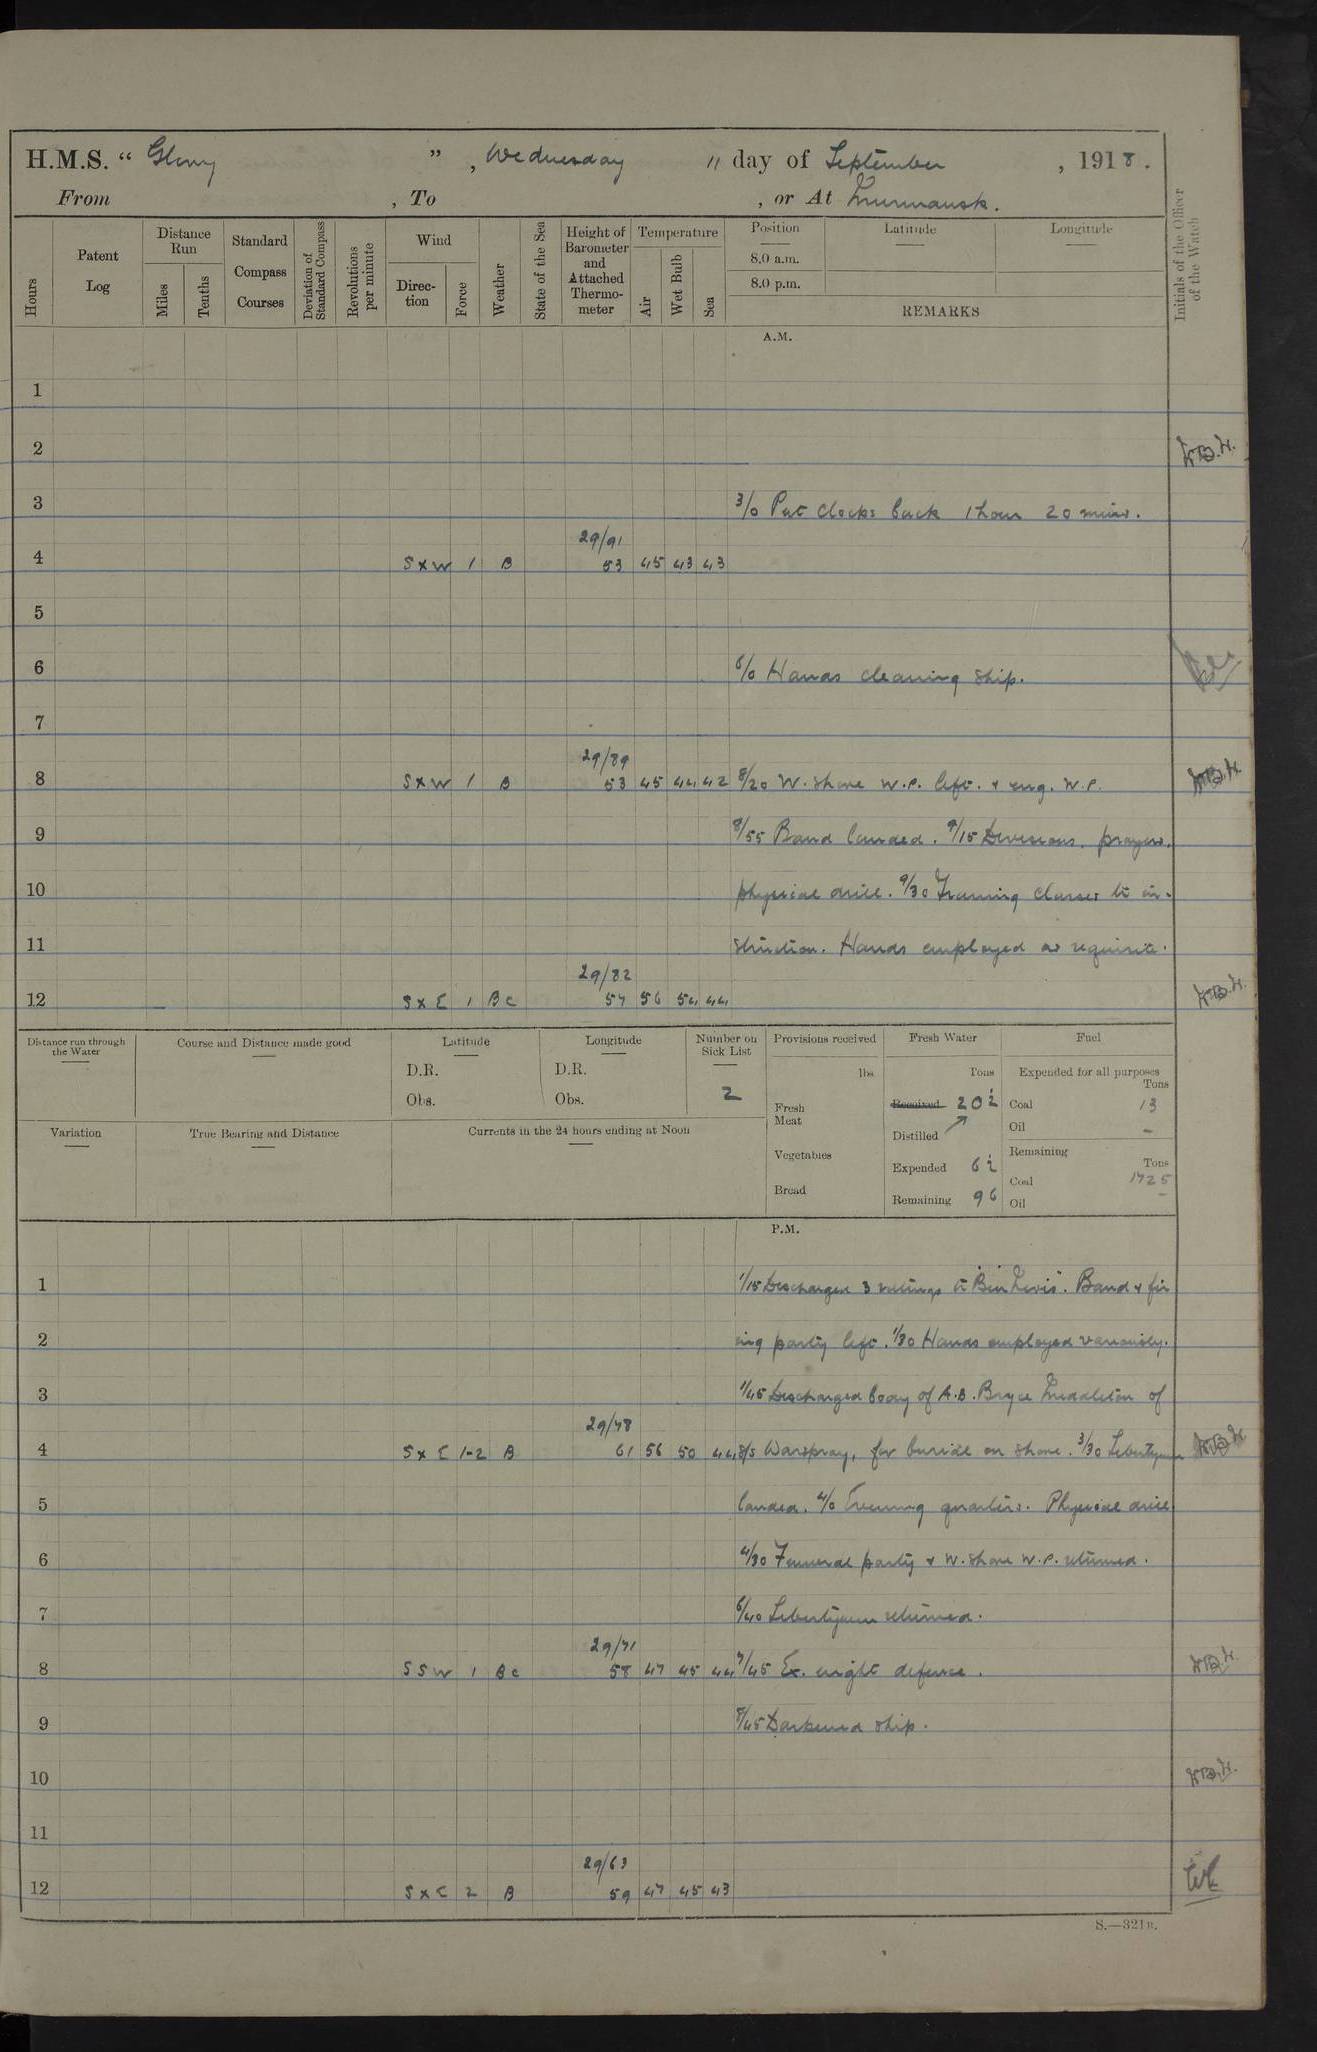 H.M.S. “ Glory ” , Wednesday 11 day of September , 1918 .
From , To , or At Murmansk.
Hours
Patent Log
Distance Run
Miles
Tenths
Standard Compass Courses
Deviation of Standard Compass
Revolutions per minute
Wind
Direction
Force
Weather
State of the Sea
Height of Barometer and Attached Thermometer
Temperature
Air
Wet Bulb
Sea
Position
8.0 a.m.
8.0 p.m.
Latitude
Longitude
REMARKS
Initials of the Officer of the Watch
A.M.
1
2
3 3/0 Put clocks back 1 hour 20 mins.
29/91
4 S x W 1 B 53 45 43 43
5
6 6/0 Hands cleaning ship.
7
29/89
8 S x W 1 B 53 45 44 42 8/20 W. shore W.P. left. & eng. W.P.
9 8/55 Band landed. 9/15 Divisions. prayers.
10 physical drill. 9/30 Training classes to in-
11 struction. Hands employed as requisite.
29/82
12 S x E 1 BC 57 56 54 44
Distance run through the Water
Course and Distance made good
Latitude
D.R.
Obs.
Longitude
D.R.
Obs.
Number on Sick List
2
Provisions received
lbs.
Fresh Meat
Vegetables
Bread
Fresh Water
Tons
Received 20½
Distilled
Expended 6½
Remaining 96
Fuel
Expended for all purposes
Tons
Coal 13
Oil –
Remaining
Tons
Coal 1725
Oil –
Variation
True Bearing and Distance
Currents in the 24 hours ending at Noon
P.M.
1 1/15 Discharged 3 ratings to "Ben Nevis". Band & fir
2 ing party left. 1/30 Hands employed variously.
3 1/45 Discharged body of A.B. Bryce Middleton of
29/78
4 S x E 1-2 B 61 56 50 44 S/S Warspray, for burial on shore. 3/30 Libertymen
5 landed. 4/0 Evening quarters. Physical drill
6 4/30 Funeral party & W. shore W.P. returned.
7 6/40 Libertymen returned.
29/71
8 SSW 1 BC 58 47 45 44 7/45 Ex. night defence.
9 8/45 Darkened ship.
10
11
29/63
12 S x E 2 B 59 47 45 43
S.—321B.